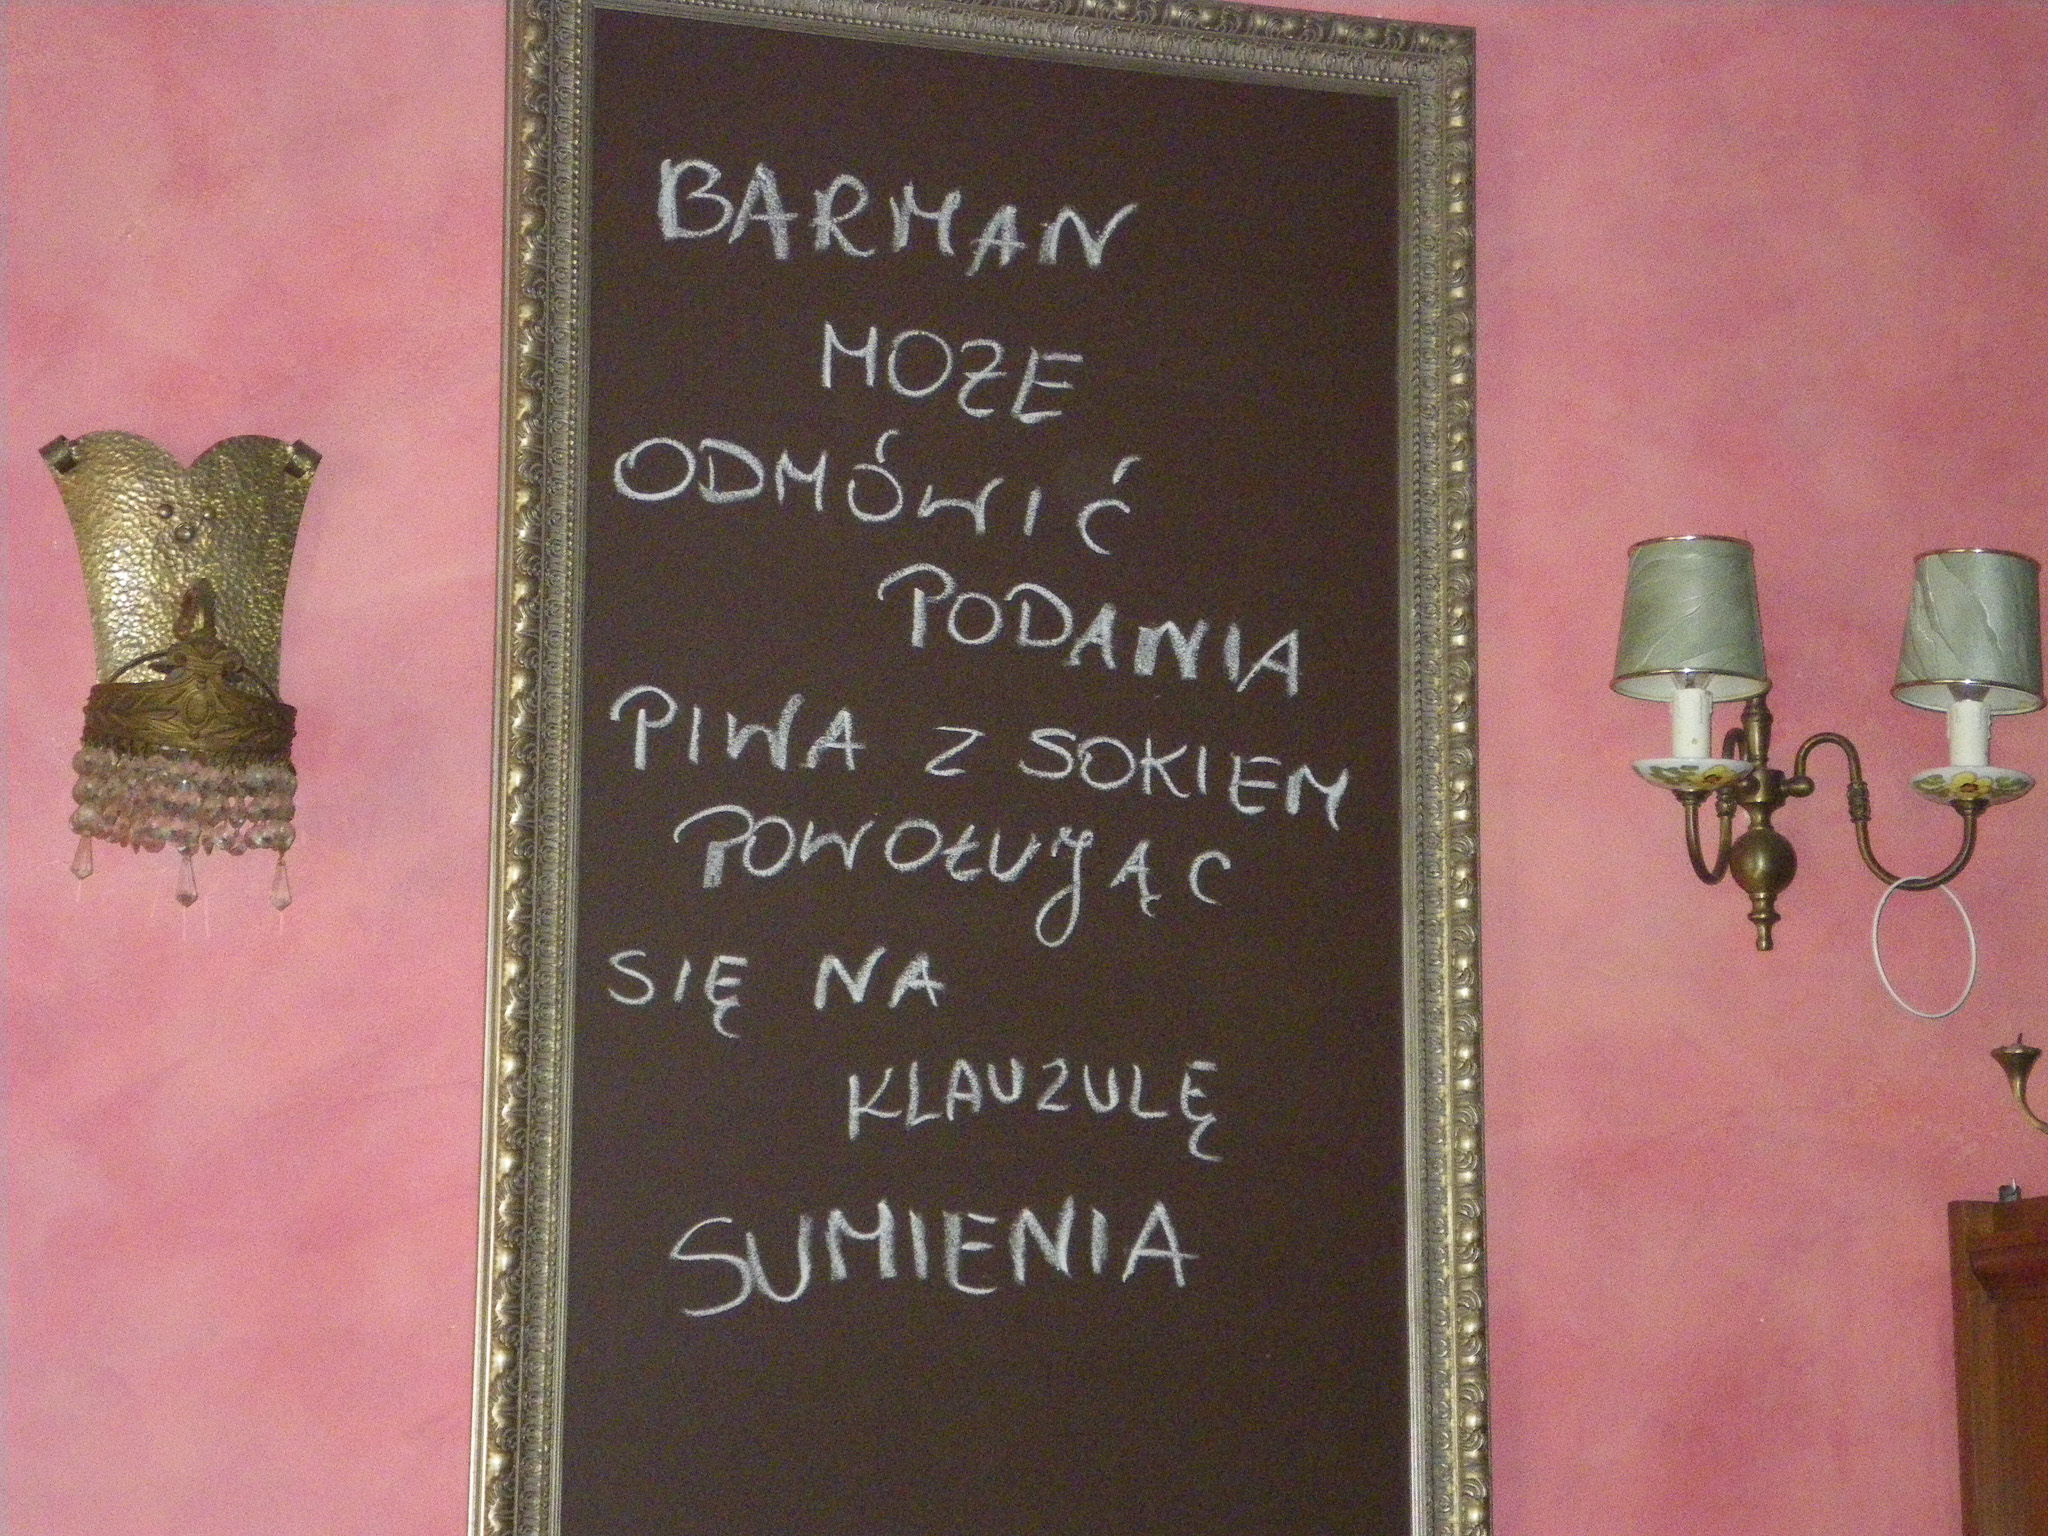 BARMAN
MOZE
ODMÓWIĆ
PODANIA
PIWA Z SOKIEM
POWOŁUJĄC
SIĘ NA
KLAUZULĘ
SUMIENIA